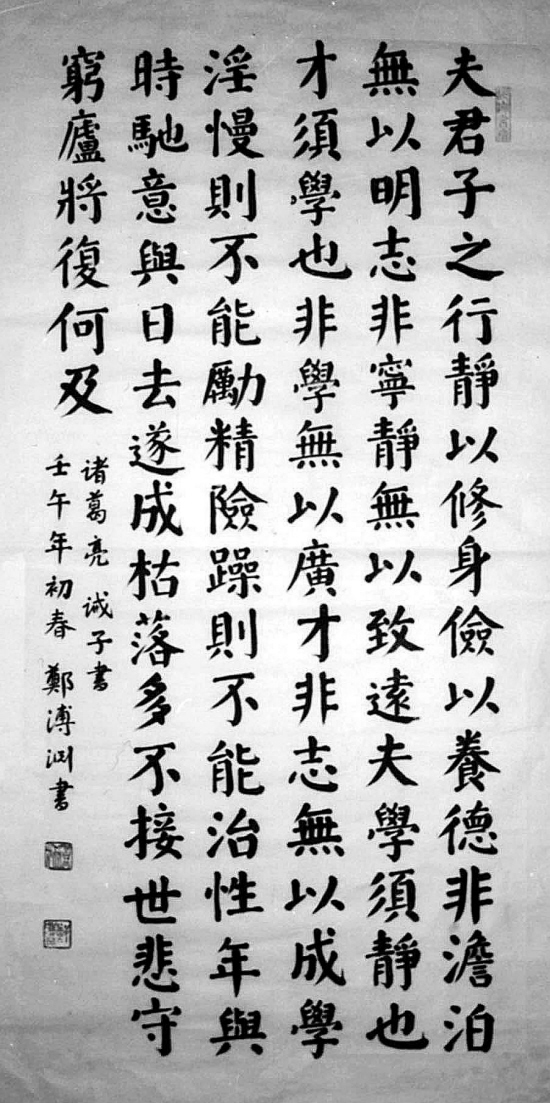 夫君子之行靜以修身儉以養德非澹泊
無以明志非寧靜無以致遠夫學須靜也
才須學也非學無以廣才非志無以成學
淫慢則不能勵精險躁則不能治性年與
時馳意與日去遂成枯落多不接世悲守
窮廬將復何及
诸葛亮诫子書
壬午年初春 鄭溥渊書